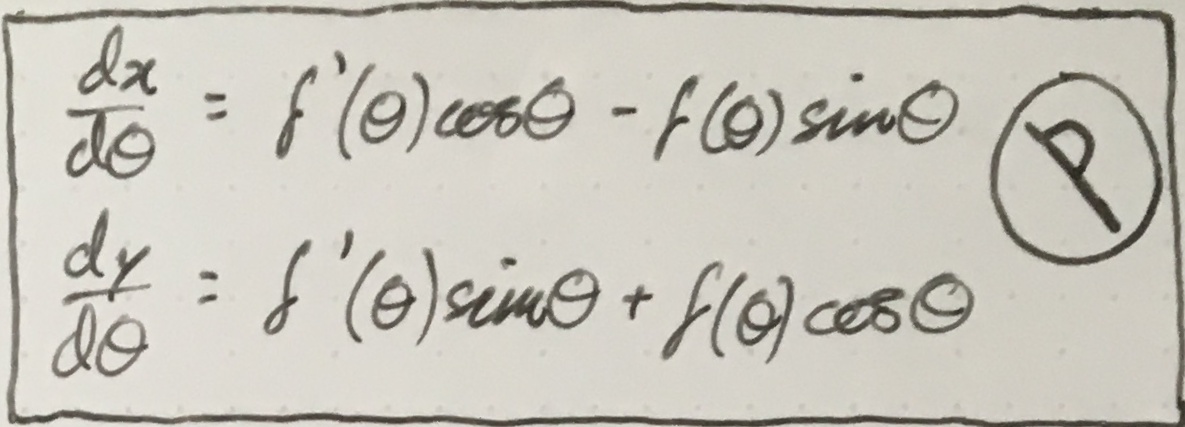 dx/dθ = f'(θ)cosθ - f(θ)sinθ
P
dy/dθ = f'(θ)sinθ + f(θ)cosθ